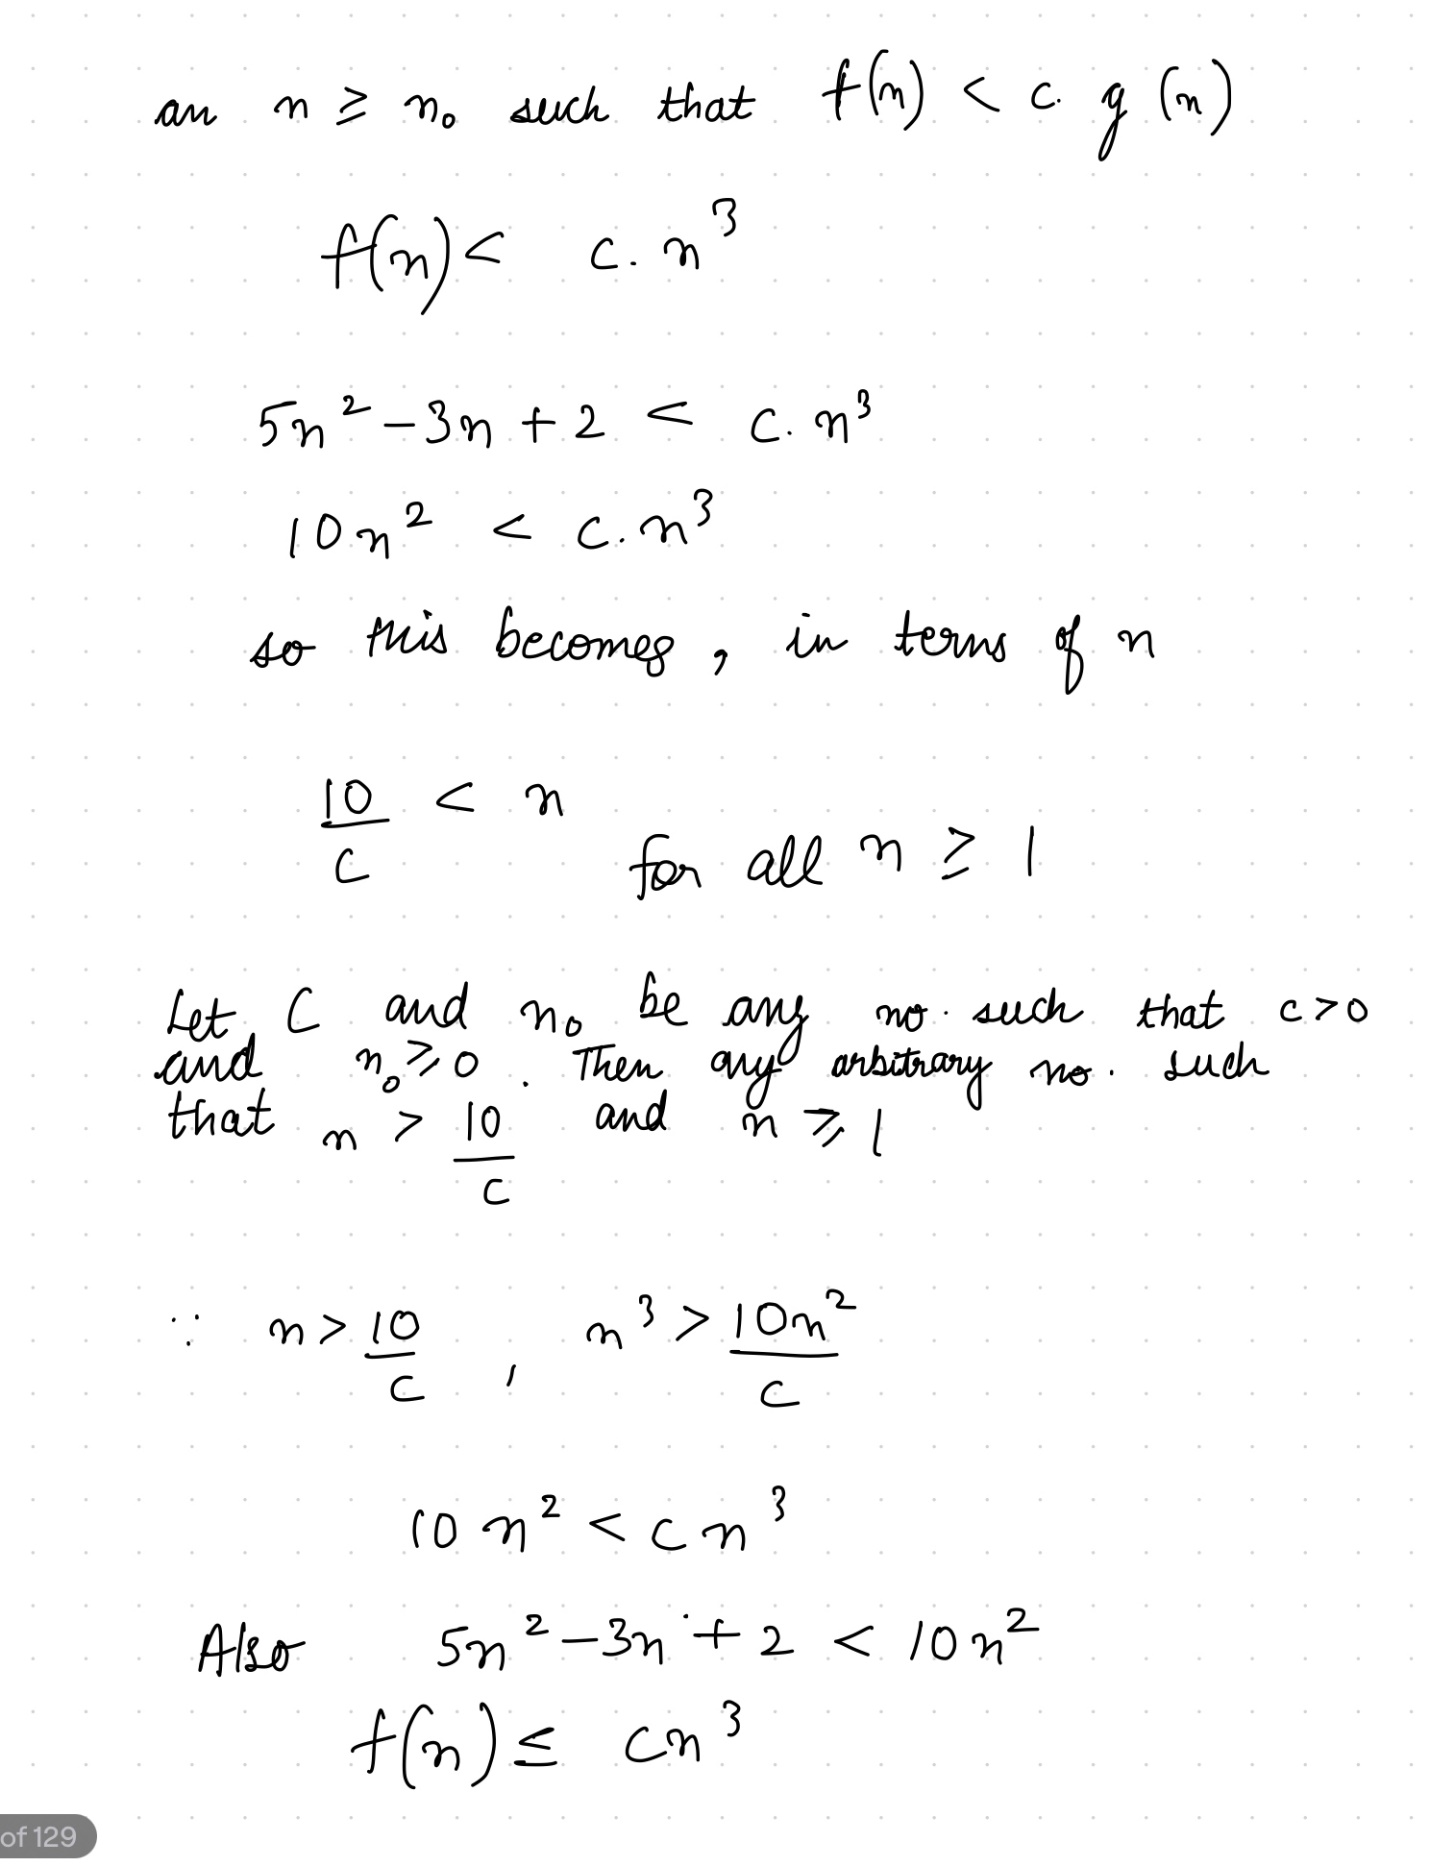 an n ≥ n₀ such that f(n) < c. g(n)
f(n) < c. n³
5n² - 3n + 2 < c. n³
10n² < c. n³
so this becomes, in terms of n
10/c < n
for all n ≥ 1
Let C and n₀ be any no. such that c > 0
and n₀ ≥ 0. Then any arbitrary no. such
that n > 10/c and n ≥ 1
∵ n > 10/c , n³ > 10n²/c
10n² < cn³
Also 5n² - 3n + 2 < 10n²
f(n) ≤ cn³
of 129